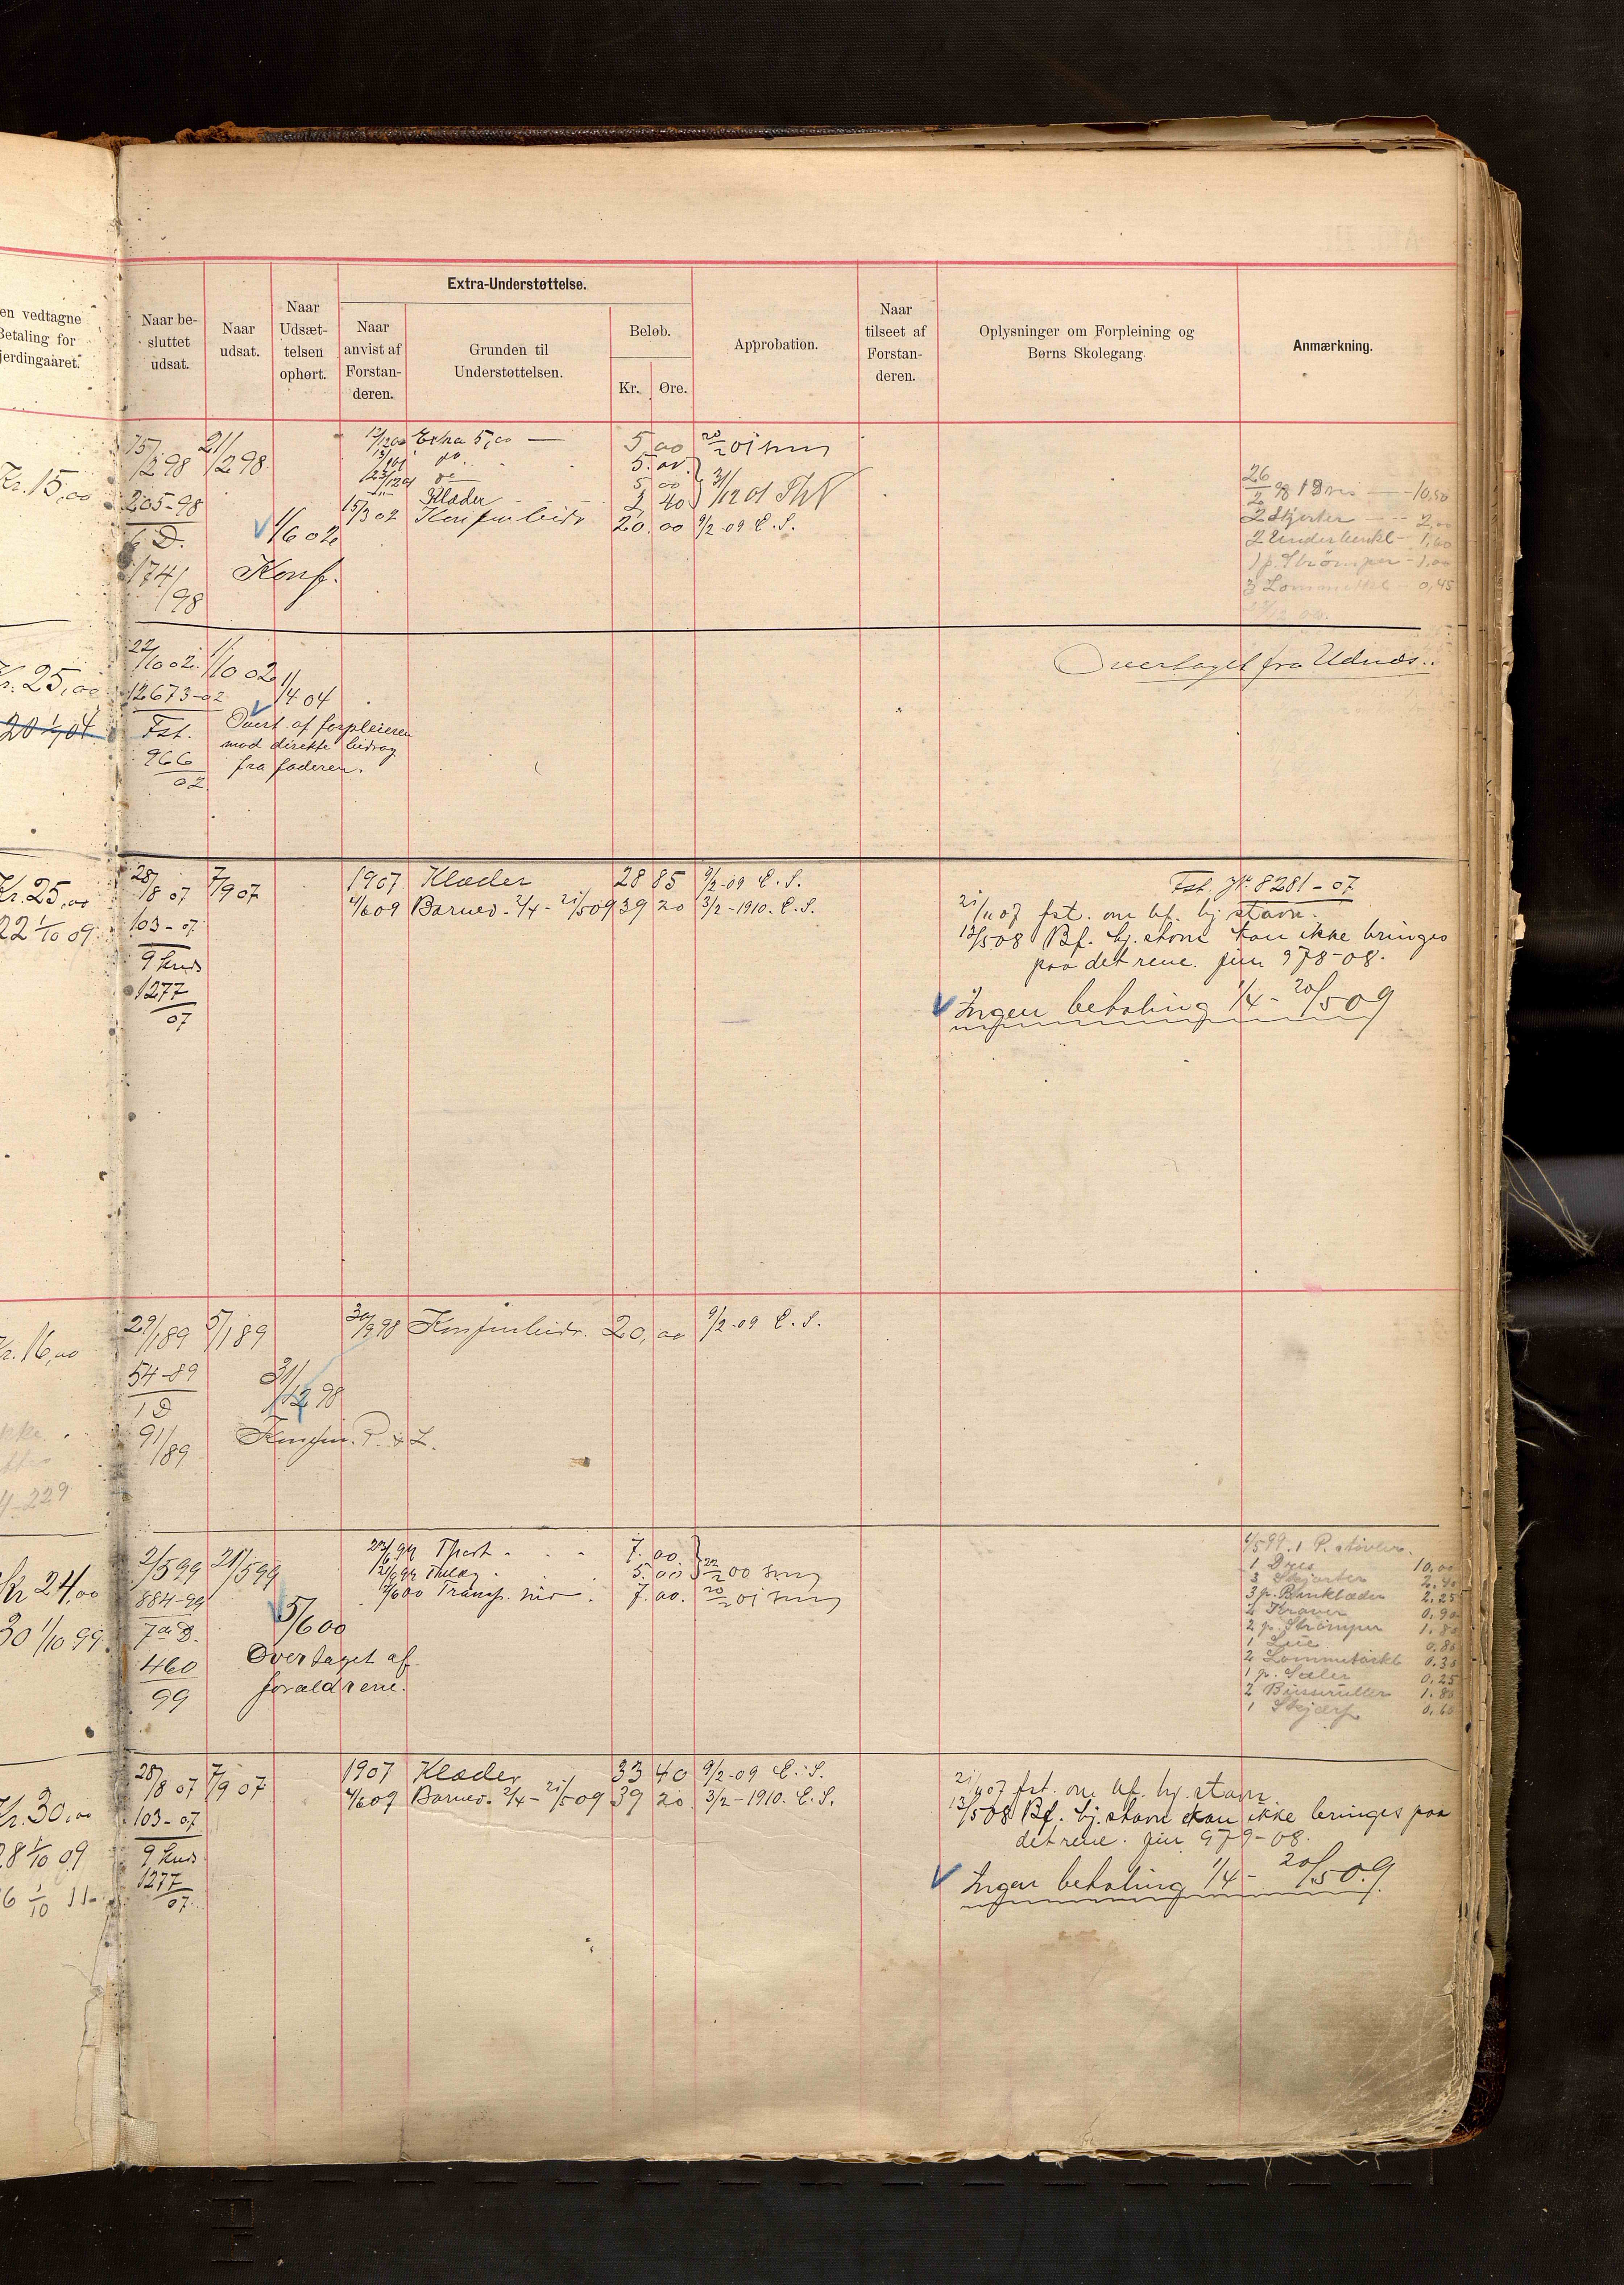 Extra-Understøttelse.
en vedtagne
Betaling for
jerdingaaret.
Naar be-
sluttet
udsat.
Naar
udsat.
Naar
Udsæt-
telsen
ophørt.
Naar
anvist af
Forstan-
deren.
Grunden til
Understøttelsen.
Beløb.
Kr.
Øre.
Approbation.
Naar
tilseet af
Forstan-
deren.
Oplysninger om Forpleining og
Børns Skolegang.
Anmærkning.
Kr. 15,00
15/2 98
21/2 98
205-98
174/98
1/6 02
Konf.
Extra 5,00 — 5 00 20/2 01
do. 5.00
do 5 00 31/12 01
Klæder 2 40
15/3 02 20.00 9/2-09 E.S.
26/2 98 1 Dres — 10,50
2 Skjorter — 2,00
2 Underbenkl — 1,60
1 p. Strømper — 1,00
3 Lommetkl — 0,45
Kr. 25,00
22/10 02. 1/10 02
12673-02
1/4 04
Fst.
966
02.
Overt af forpleieren
mod direkte bidrag
fra faderen.
Overtaget fra Udnæs..
Kr. 25,00
22 1/10 09.
28/8 07 7/9 07
103-07
1277
07
1907 Klæder 28 85 9/2-09 E.S.
4/6 09 Barned. 2/4 - 21/5 09 39 20 3/2-1910. E.S.
Fst. Jr. 8281-07
21/11 07 fst. om bf. hj.stavn.
13/5 08 Bf. hj.stavn kan ikke bringes
paa det rene. jnr 978-08.
Ingen betaling 1/4 - 20/5 09
Kr. 16,00
29/1 89 5/1 89
54-89
91/89
31/12 98
30/9 98 20,00 9/2-09 E.S.
4-229
Kr 24,00
30 1/10 99
2/5 99 21/5 99
884-99
460
99
5/6 00
Overtaget af
forældrene.
7.00.
5.00 22/2 00
7.00. 20/2 01
1 P. støvler.
1 Dres 10,00
3 Skjorter 2.40
3 p. Benklæder 2,25
Kraver 0,90
2 p. Strømper 1.80
1 Lue 0.80
2 Lommetørkl 0.30
1 p. Seler 0.25
2 Busseruller 1.80
1 Skjærf 0.60
Kr. 30,00
28 1/10 09
6 1/10 11
28/8 07 7/9 07
103-07
1277
07.
1907 Klæder 33 40 9/2-09 E.S.
4/6 09 Barned. 2/4 - 21/5 09 39 20 3/2-1910. E.S.
21/11 07 fst. om bf. hj.stavn
13/5 08 Bf. hj.stavn kan ikke bringes paa
det rene. jnr 979-08.
Ingen betaling 1/4 - 20/5 09.